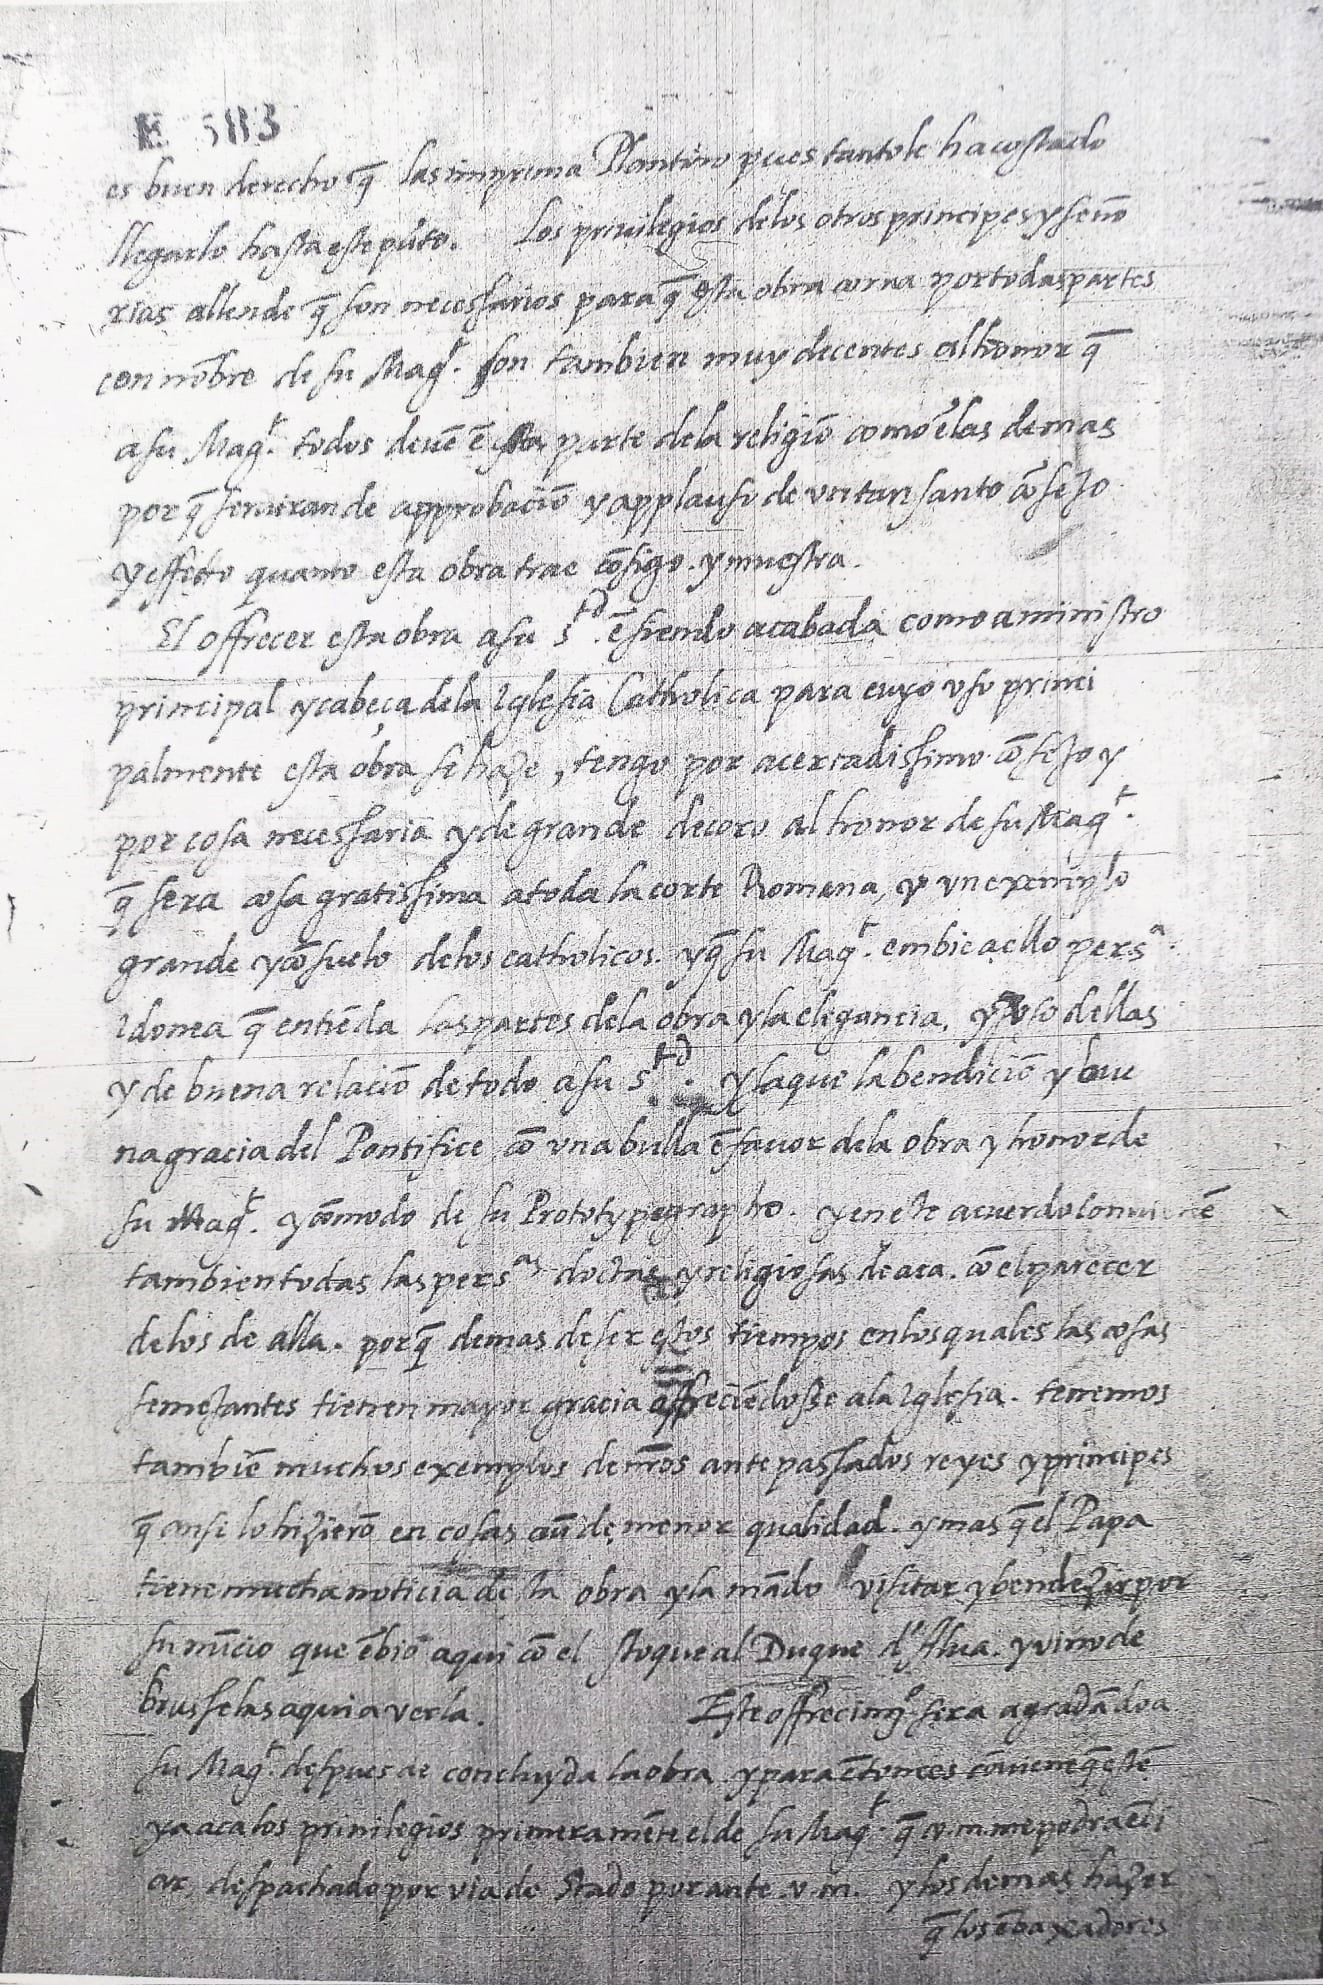 E 583
es buen derecho q̄ las imprima Plantino pues tanto le ha costado
llegarlo hasta este pũto. Los priuilegios delos otros principes y seño
rias allende q̄ son necessarios para q̄ esta obra corra por todas partes
con nõbre de su Mag.ᵗ son tambien muy decentes al honor q̄
a su Mag.ᵗ todos deuẽ ẽ esta parte dela religiõ como ẽ las demas
por q̄ seruiran de approbaciõ y applauso de vn tan santo cõsejo
y effetto quanto esta obra trae cõsigo. y muestra.
El offrecer esta obra a su S.ᵗᵈ ẽ siendo acabada como a ministro
principal y cabeça dela Iglesia Catholica para cuyo vso princi
palmente esta obra se haze, tengo por acertadissimo cõsejo y
por cosa necessaria y de grande decoro al honor de su Mag.ᵗ
q̄ sera cosa gratissima a toda la corte Romana, y vn exemplo
grande y cõsuelo delos catholicos. y q̄ su Mag.ᵗ embie a ello pers.ᵃ
Idonea q̄ entiẽda las partes dela obra y la elegancia, y vso dellas
y de buena relaciõ de todo a su S.ᵗᵈ. y saque la bendiciõ y bue
na gracia del Pontifice cõ vna bulla ẽ fauor dela obra y honor de
su Mag.ᵗ y cõmodo de su Prototypographo. y en este acuerdo conuienẽ
tambien todas las pers.ᵃˢ doctas y religiosas de aca. cõ el parecer
delos de alla. porq̄ demas de ser estos tiempos enlos quales las cosas
semejantes tienen mayor gracia offreciẽdosse ala Iglesia. tenemos
tambiẽ muchos exemplos de nr̃os antepassados reyes y principes
q̄ ansi lo hizierõ en cosas aũ de menor qualidad. y mas q̄ el Papa
tiene mucha noticia desta obra y la mãdo visitar y bendezir por
su nũcio que ẽbiò aqui cõ el stoque al Duque d'Alua. y vino de
brusselas aqui a verla. Este offrecimj.º sera agradãdo a
su Mag.ᵗ despues de concluyda la obra. y para ẽtonces cõuiene q̄ estẽ
ya aca los priuilegios primeramẽte el de su Mag.ᵗ q̄ v. m. me podra ẽbi
ar, despachado por via de Stado por ante v. m. y los demas hazer
q̄ los ẽbaxadores